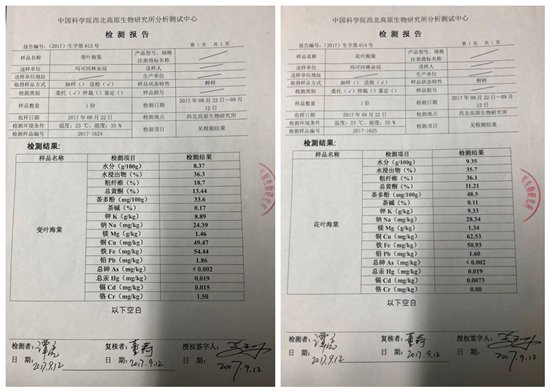 中国科学院西北高原生物研究所分析测试中心
检 测 报 告
报告编号:(2017)生字第 613 号 第 1 页 共 1 页
样品名称 变叶海棠 产品型号、规格
注册商标名称
送样单位 玛可河林业局 送样人
送样单位地址 生产单位
取得样品方式 抽样() 送检(√) 样品状态特性
检测类别 委托(√)仲裁()鉴定() 样品批号
样品数量 1 份 检测日期 2017 年 08 月 22 日~09 月 12 日
收样日期 2017 年 08 月 22 日 检测地点 西北高原生物研究所
检测环境条件 温度:23 ℃、湿度:35 % 检测项目 见检测结果
检测样品编号 2017-1624
检测结果:
样品名称 检测项目 检测结果
变叶海棠
水分(g/100g) 8.37
水浸出物(%) 36.3
粗纤维(%) 18.7
总黄酮(%) 13.44
茶多酚(mg/100g) 33.6
茶碱(%) 0.17
钾 K(mg/kg) 8.89
钠 Na(mg/kg) 24.39
镁 Mg(mg/kg) 1.46
铜 Cu(mg/kg) 49.47
铁 Fe(mg/kg) 54.44
铅 Pb(mg/kg) 1.86
总砷 As(mg/kg) <0.002
总汞 Hg(mg/kg) 0.019
镉 Cd(mg/kg) 0.015
铬 Cr(mg/kg) 1.50
以下空白
检测者: 复核者: 授权签字人:
日 期:2017.9.12 日 期:2017.9.12 2017.9.12
中国科学院西北高原生物研究所分析测试中心
检 测 报 告
报告编号:(2017)生字第 614 号 第 1 页 共 1 页
样品名称 花叶海棠 产品型号、规格
注册商标名称
送样单位 玛可河林业局 送样人
送样单位地址 生产单位
取得样品方式 抽样() 送检(√) 样品状态特性
检测类别 委托(√)仲裁()鉴定() 样品批号
样品数量 1 份 检测日期 2017 年 08 月 22 日~09 月 12 日
收样日期 2017 年 08 月 22 日 检测地点 西北高原生物研究所
检测环境条件 温度:23 ℃、湿度:35 % 检测项目 见检测结果
检测样品编号 2017-1625
检测结果:
样品名称 检测项目 检测结果
花叶海棠
水分(g/100g) 9.35
水浸出物(%) 35.7
粗纤维(%) 36.1
总黄酮(%) 11.21
茶多酚(mg/100g) 48.5
茶碱(%) 0.11
钾 K(mg/kg) 9.33
钠 Na(mg/kg) 28.34
镁 Mg(mg/kg) 1.34
铜 Cu(mg/kg) 62.53
铁 Fe(mg/kg) 50.93
铅 Pb(mg/kg) 1.60
总砷 As(mg/kg) <0.002
总汞 Hg(mg/kg) 0.019
镉 Cd(mg/kg) 0.0073
铬 Cr(mg/kg) 0.80
以下空白
检测者: 复核者: 授权签字人:
日 期:2017.9.12 日 期:2017.9.12 日 期:2017.9.12